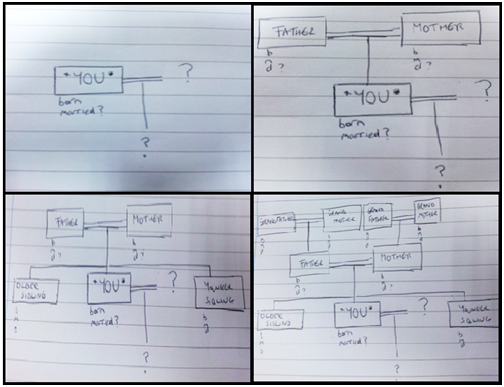 *YOU* ?
born
married?
?
FATHER MOTHER
b b
d? d?
*YOU* ?
born
married?
?
FATHER MOTHER
b b
d? d?
OLDER SIBLING *YOU* ? YOUNGER SIBLING
born b
married? d
?
GRANDFATHER GRAND MOTHER GRAND FATHER GRAND MOTHER
FATHER MOTHER
b b
d? d?
OLDER SIBLING *YOU* ? YOUNGER SIBLING
born b
married? d
?